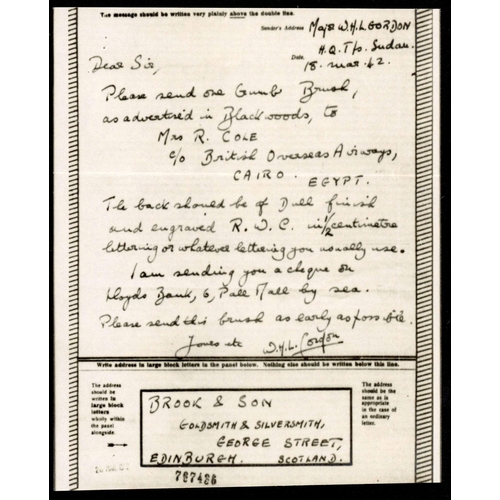 The message should be written very plainly above the double line.
Sender's Address Majr W.H.L GORDON
H.Q. Tps. Sudan.
Date. 18. mar. 42.
Dear Sir,
Please send one Gumb Brush,
as advertised in Blackwoods, to
Mrs R. COLE
c/o British Overseas Airways,
CAIRO.
EGYPT.
The back should be of Dull finish
and engraved R.W.C. in 1/2 centimetre
lettering or whatever lettering you usually use.
I am sending you a cheque on
Lloyds Bank, 6, Pall Mall by sea.
Please send this brush as early as possible.
Yours etc W.H.L. Gordon
Write address in large block letters in the panel below. Nothing else should be written below this line.
The address
should be
written in
large block
letters
wholly within
the panel
alongside.
BROOK & SON
GOLDSMITH & SILVERSMITH,
GEORGE STREET,
EDINBURGH. SCOTLAND.
The address
should be
the same as is
appropriate
in the case of
an ordinary
letter.
787486